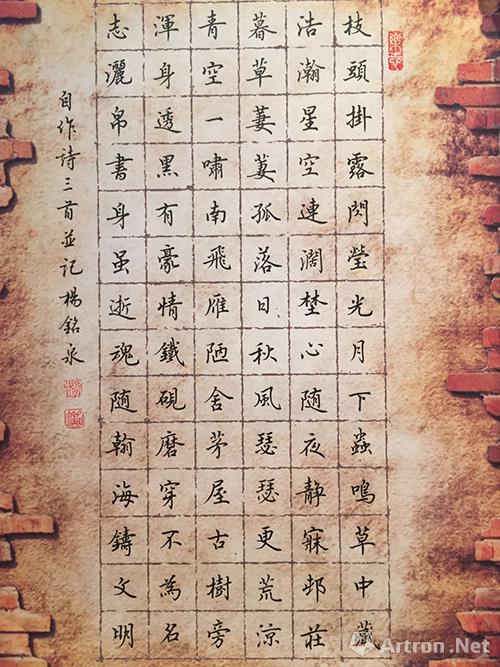 枝頭掛露閃瑩光月下蟲鳴草中藏
浩瀚星空連濶埜心随夜静寐邨莊
暮草萋萋孤落日秋風瑟瑟更荒涼
青空一嘯南飛雁陋舍茅屋古樹旁
渾身透黑有豪情鐵硯磨穿不為名
志灑帛書身虽逝魂随翰海鑄文明
自作詩三首並记楊銘泉
Artron.Net